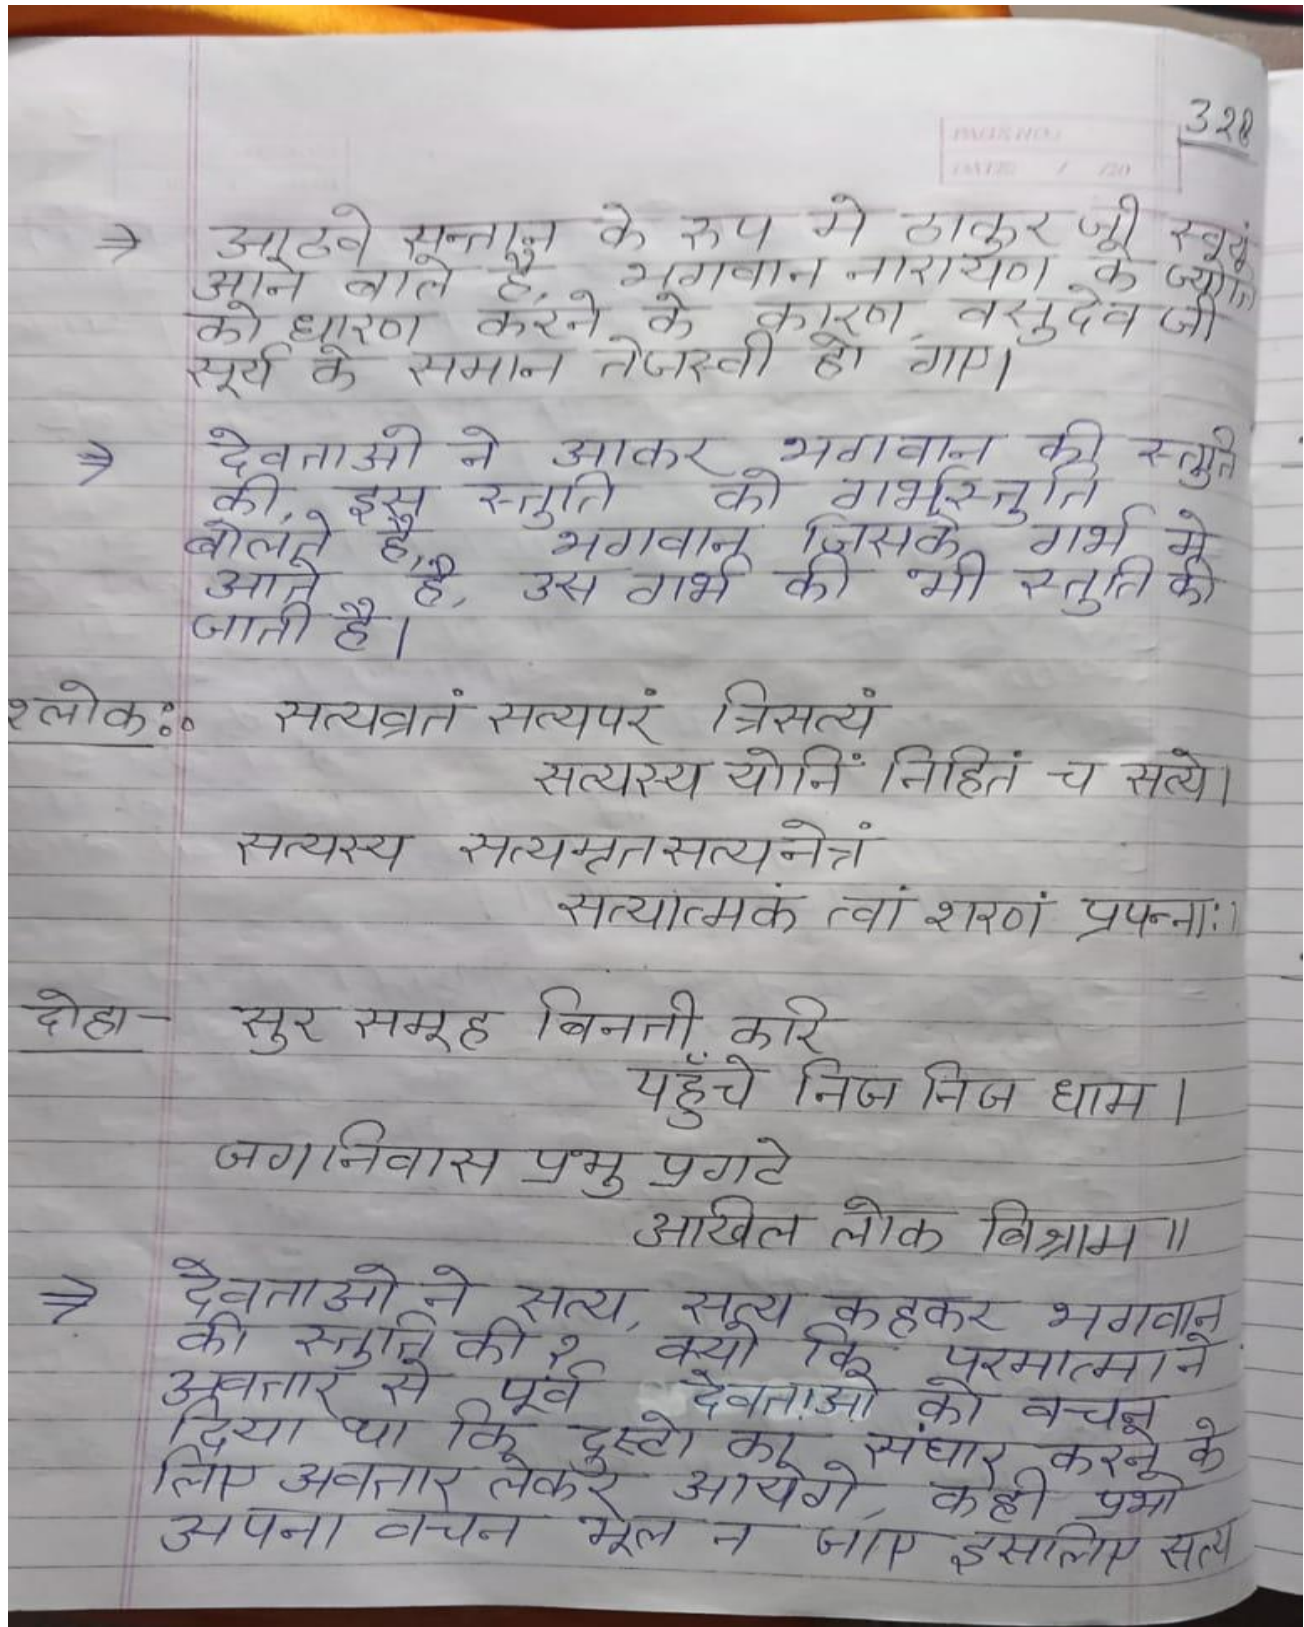 328
⇒ आठवे सन्तान के रुप मे ठाकुर जी स्वयं
आने बाले है, भगवान नारायण के ज्योति
को धारण करने के कारण वसुदेव जी
सूर्य के समान तेजस्वी हो गए।
⇒ देवताओ ने आकर भगवान की स्तुति
की, इस स्तुति को गर्भस्तुति
बोलते है, भगवान जिसके गर्भ मे
आते है, उस गर्भ की भी स्तुति की
जाती है।
श्लोकः सत्यव्रतं सत्यपरं त्रिसत्यं
सत्यस्य योनिं निहितं च सत्ये।
सत्यस्य सत्यमृतसत्यनेत्रं
सत्यात्मकं त्वां शरणं प्रपन्नाः।
दोहा- सुर समूह बिनती करि
पहुँचे निज निज धाम।
जगनिवास प्रभु प्रगटे
अखिल लोक बिश्राम॥
⇒ देवताओ ने सत्य, सत्य कहकर भगवान
की स्तुति की? क्यो कि परमात्मा ने
अवतार से पूर्व देवताओ को वचन
दिया था कि दुस्टो का संघार करने के
लिए अवतार लेकर आयेगे, कही प्रभो
अपना वचन भूल न जाए इसलिए सत्य